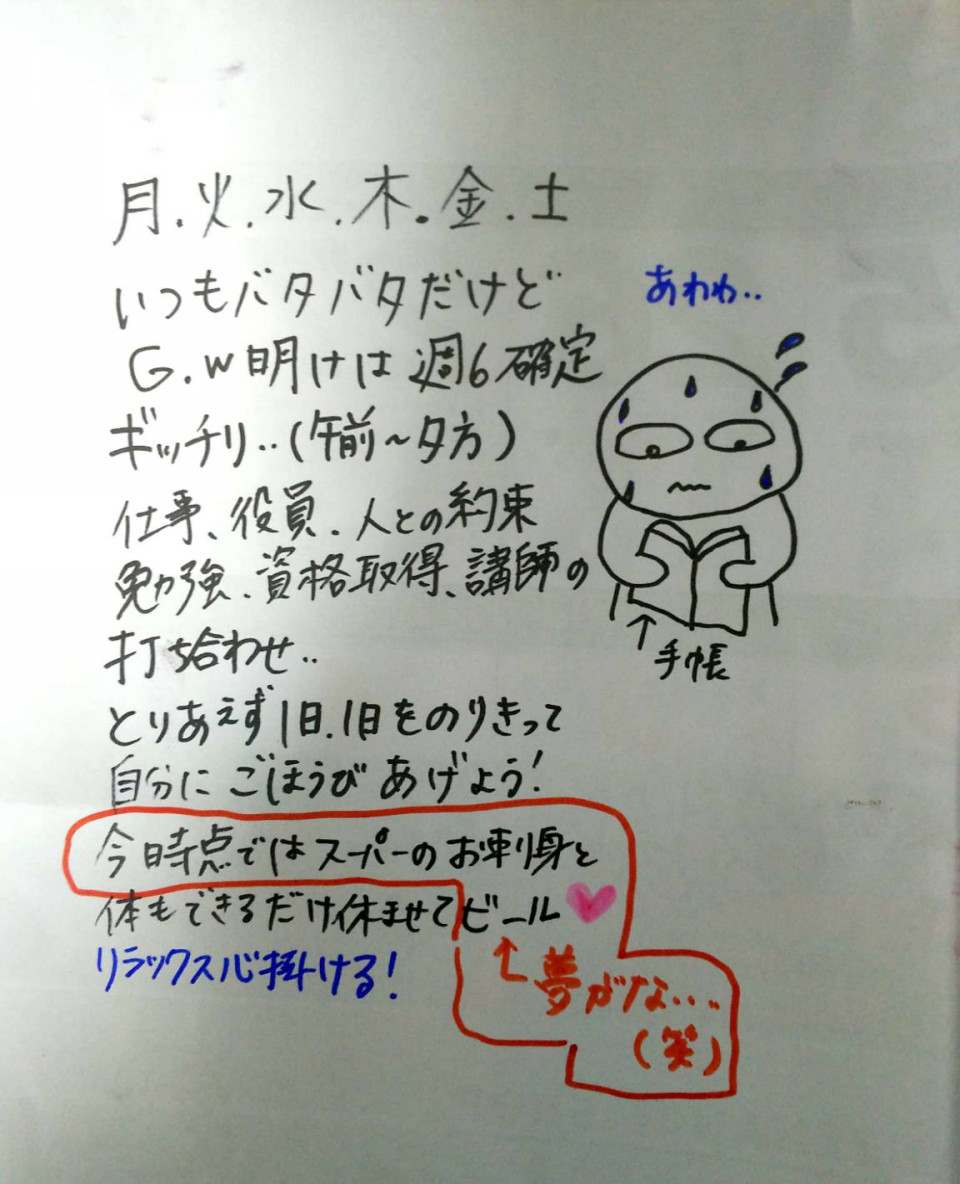 月.火.水.木.金.土
いつもバタバタだけど
G.W明けは週6確定
ギッチリ..(午前~夕方)
仕事、役員、人との約束
勉強、資格取得、講師の
打ち合わせ..
とりあえず1日.1日をのりきって
自分にごほうびあげよう!
今時点ではスーパーのお刺身と
ビール
←夢がな....
(笑)
体もできるだけ休ませて
リラックス心掛ける!
あわわ..
↑手帳